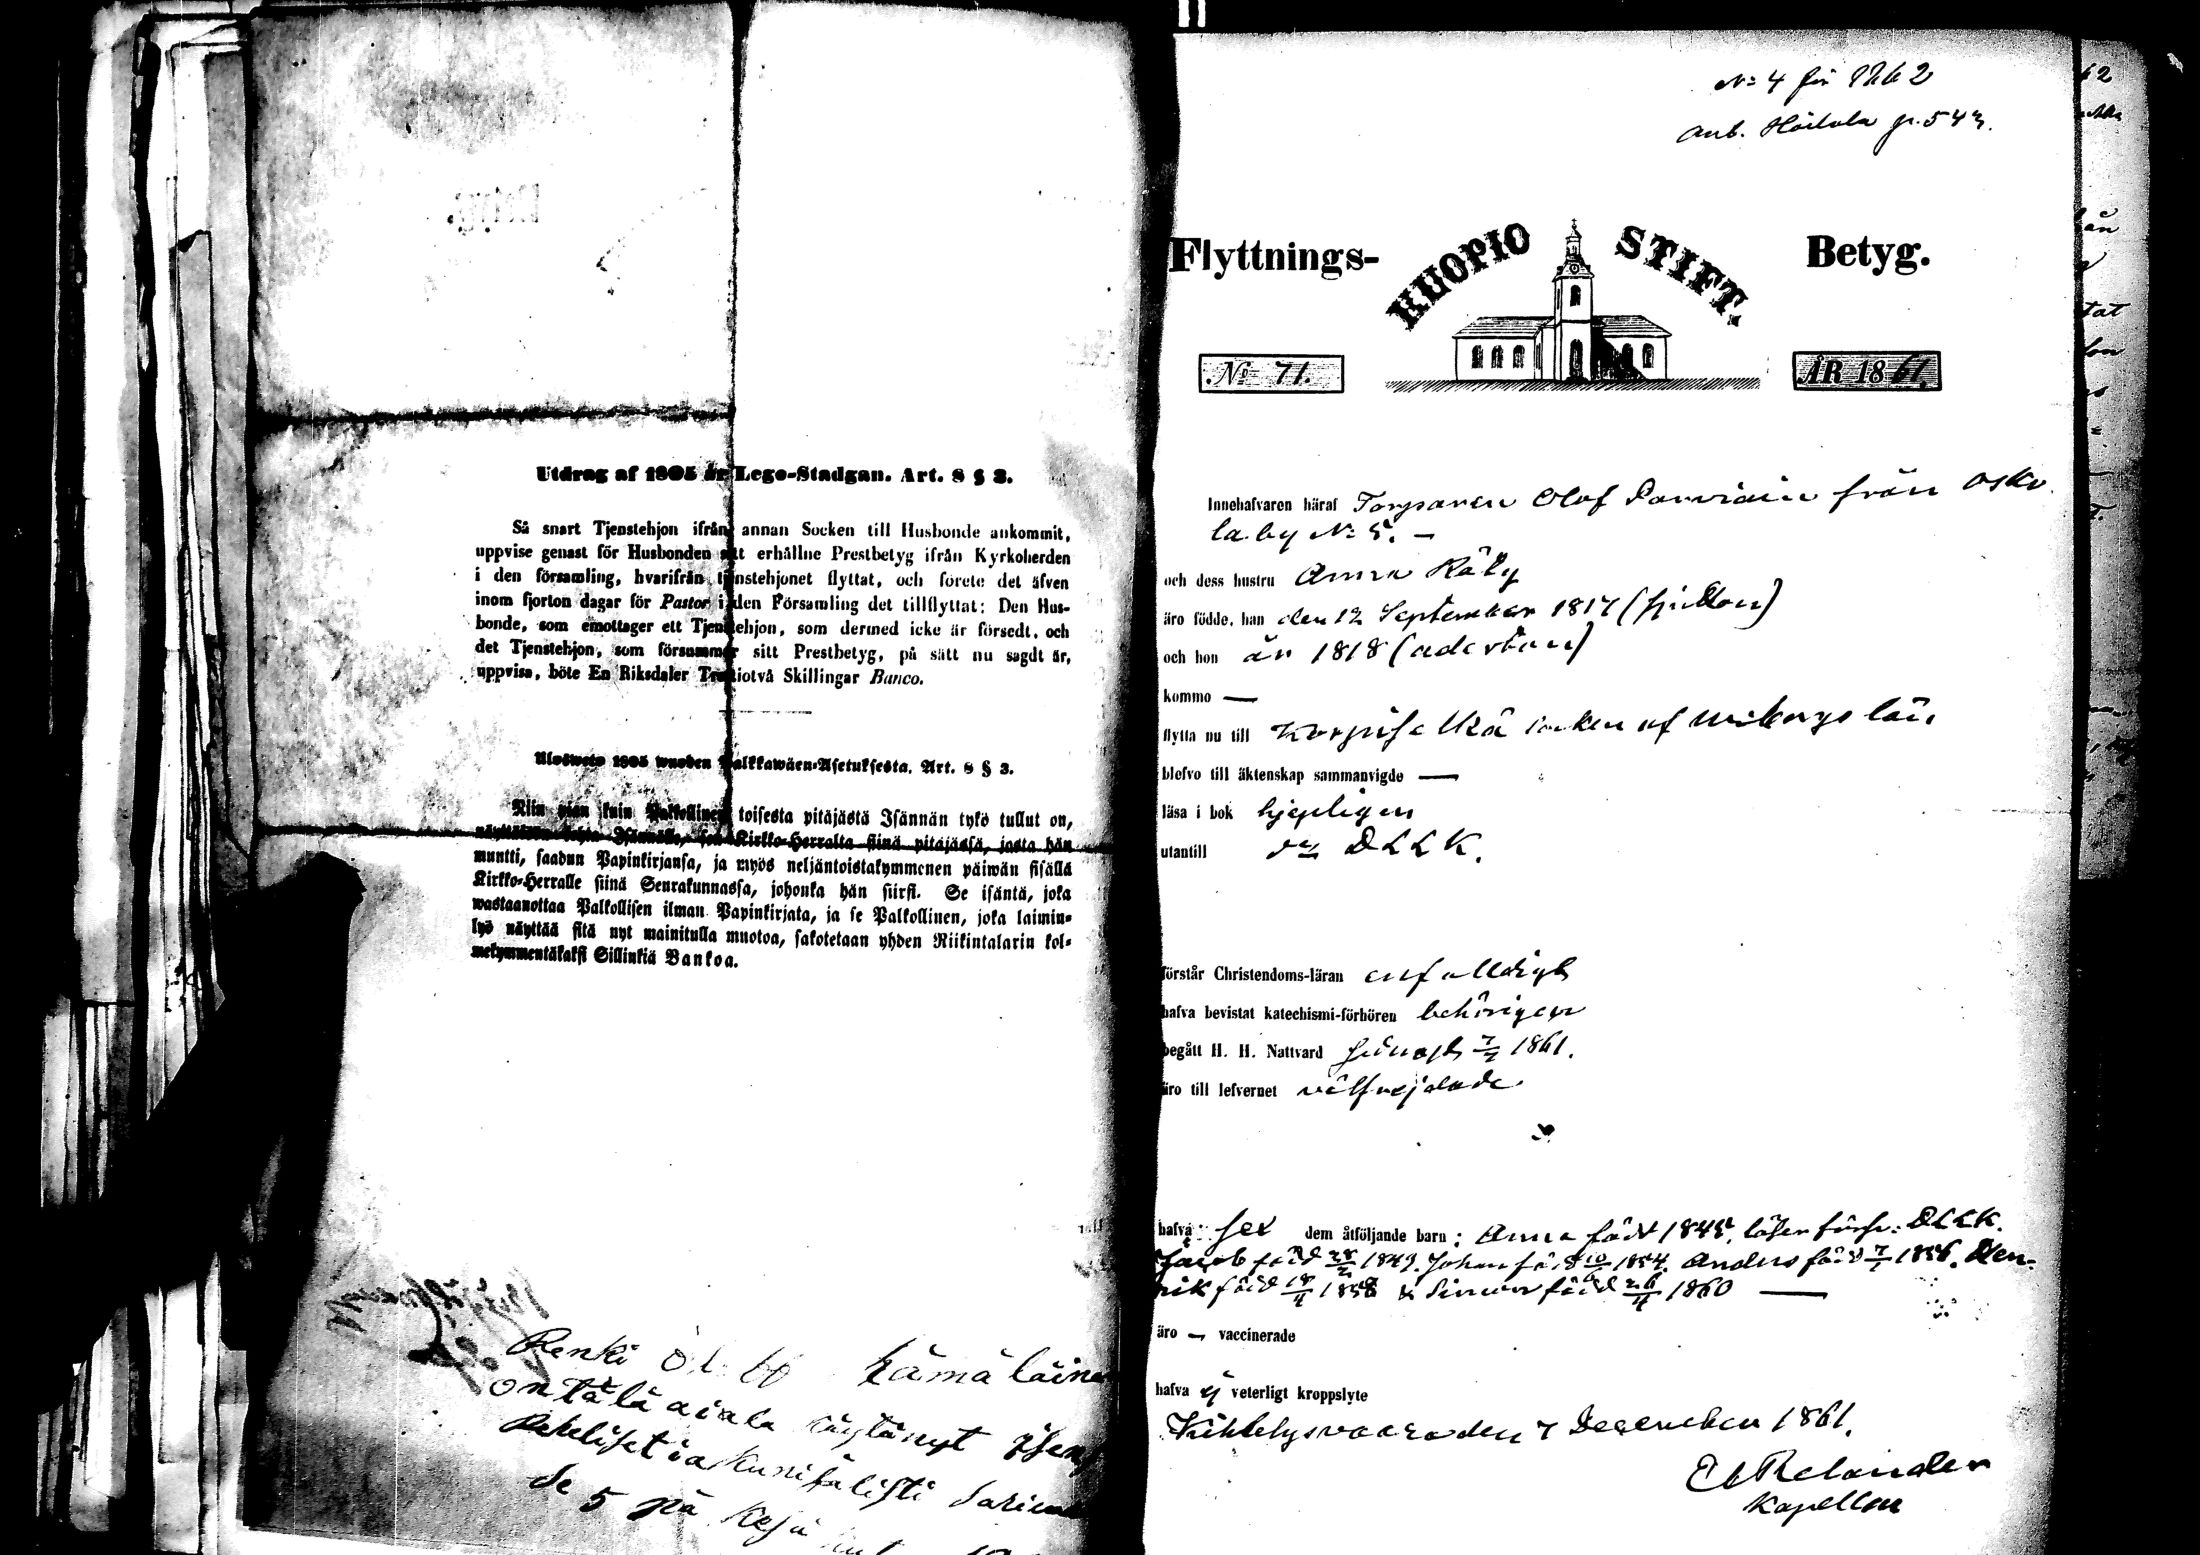 Utdrag af 1805 år Lego-Stadgan. Art. 8 § 3.
Så snart Tjenstehjon ifrån annan Socken till Husbonde ankommit,
uppvise genast för Husbonden sitt erhållne Prestbetyg ifrån Kyrkoherden
i den församling, hvarifrån tjenstehjonet flyttat, och förete det äfven
inom fjorton dagar för Pastor i den Församling det tillflyttat: Den Hus-
bonde, som emottager ett Tjenstehjon, som dermed icke är försedt, och
det Tjenstehjon, som försummar sitt Prestbetyg, på sätt nu sagdt är,
uppvisa, böte En Riksdaler Trettiotvå Skillingar Banco.
Ulosweto 1805 wuoden Palkkawäen-Asetuksesta. Art. 8 § 3.
Niin pian kuin Palkollinen toisesta pitäjästä Isännän tykö tullut on,
Kirkko-Herralta siinä pitäjässä, josta hän
muutti, saadun Papinkirjansa, ja myös neljäntoistakymmenen päiwän sisällä
Kirkko-Herralle siinä Seurakunnassa, johonka hän siirsi. Se isäntä, joka
wastaanottaa Palkollisen ilman Papinkirjata, ja se Palkollinen, joka laimin-
lyö näyttää sitä nyt mainitulla muotoa, sakotetaan yhden Riikintalarin kol-
mekymmentäkaksi Sillinkiä Bankoa.
Renki Hämäläinen
on tälä aiala käytänyt
Rehelisetiä kunialisti
de 5 pä kesä
No 4 för 1862
anb. Hoilola p. 543.
Flyttnings- KUOPIO STIFT. Betyg.
No 71. ÅR 1861.
Innehafvaren häraf Torparen Olof Parviain från Osko
la by No 5. —
och dess hustru Anna Räty
äro födde, han den 12 September 1817 (sjutton)
och hon år 1818 (aderton)
kommo —
flytta nu till Korpiselkä socken af Wiborgs län
blefvo till äktenskap sammanvigde —
läsa i bok hjepligen
utantill do DLLK.
förstår Christendoms-läran enfaldigt
hafva bevistat katechismi-förhören behörigen
begått H. H. Nattvard senast 7/7 1861.
äro till lefvernet välfrejdade
hafva sex dem åtföljande barn: Anna född 1845, läser förfr: DLLK.
Jacob född 28/2 1849. Johan född 10/6 1854. Anders född 7/1 1856. Hen-
rik född 18/4 1858 & Simon född 26/4 1860 —
äro — vaccinerade
hafva ej veterligt kroppslyte
Kihtelysvaara den 7 December 1861.
Relander
Kapellan